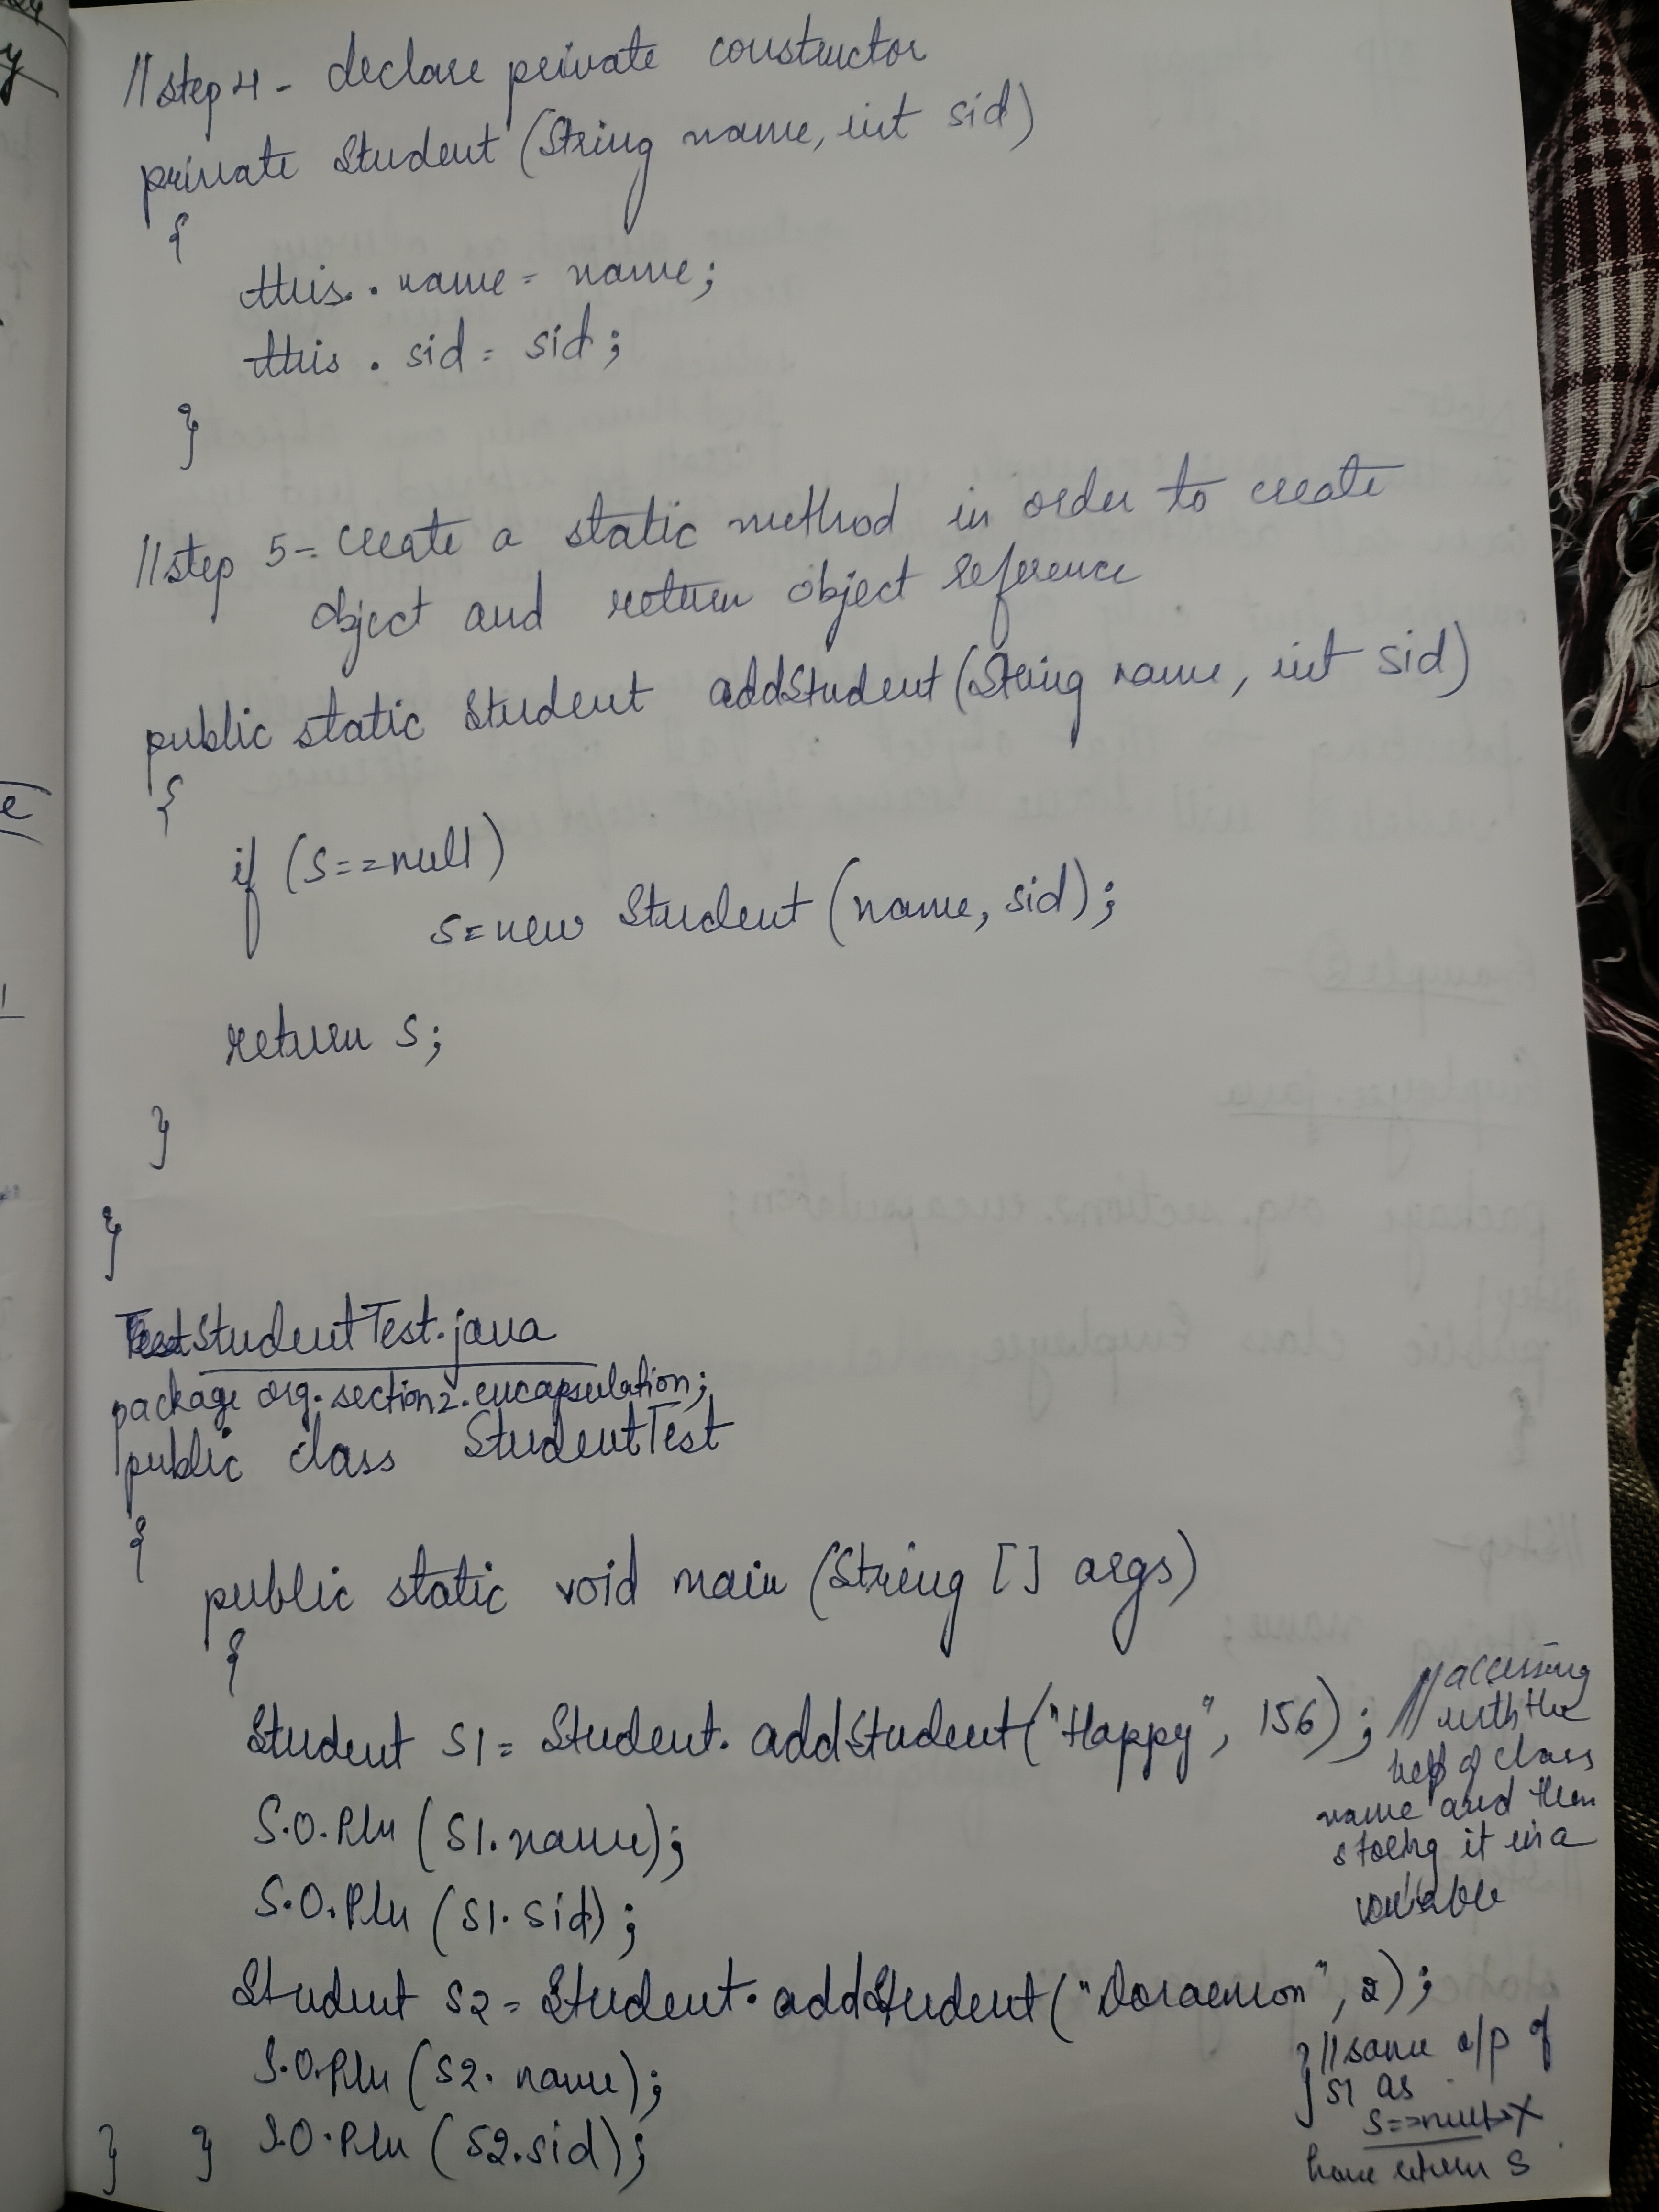 //step 4 - declare private constructor
private Student (String name, int sid)
{
this. . name = name;
this . sid = sid;
}
//step 5 - create a static method in order to create
object and return object reference
public static Student addStudent (String name, int sid)
{
if (s==null)
s=new Student (name, sid);
return s;
}
}
StudentTest.java
package org.section2.encapsulation;
public class StudentTest
{
public static void main (String [] args)
{
Student s1 = Student. addStudent ("Happy", 156); //accessing
with the
help of class
name and then
storing it in a
variable
S.O.Pln (s1.name);
S.O.Pln (s1.sid);
Student s2 = Student. addStudent ("Doraemon", 2);
S.O.Pln (s2. name);
S.O.Pln (s2.sid);
} //same o/p of
s1 as
s==null→X
hence return s
} }